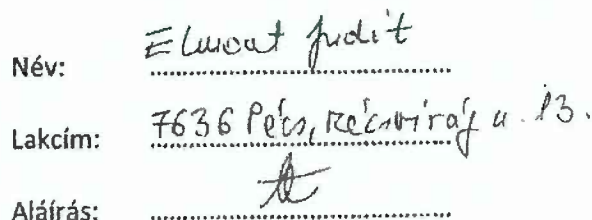 Név: Judit
Lakcím: 7636 Pécs, Récevirág u. 13.
Aláírás: